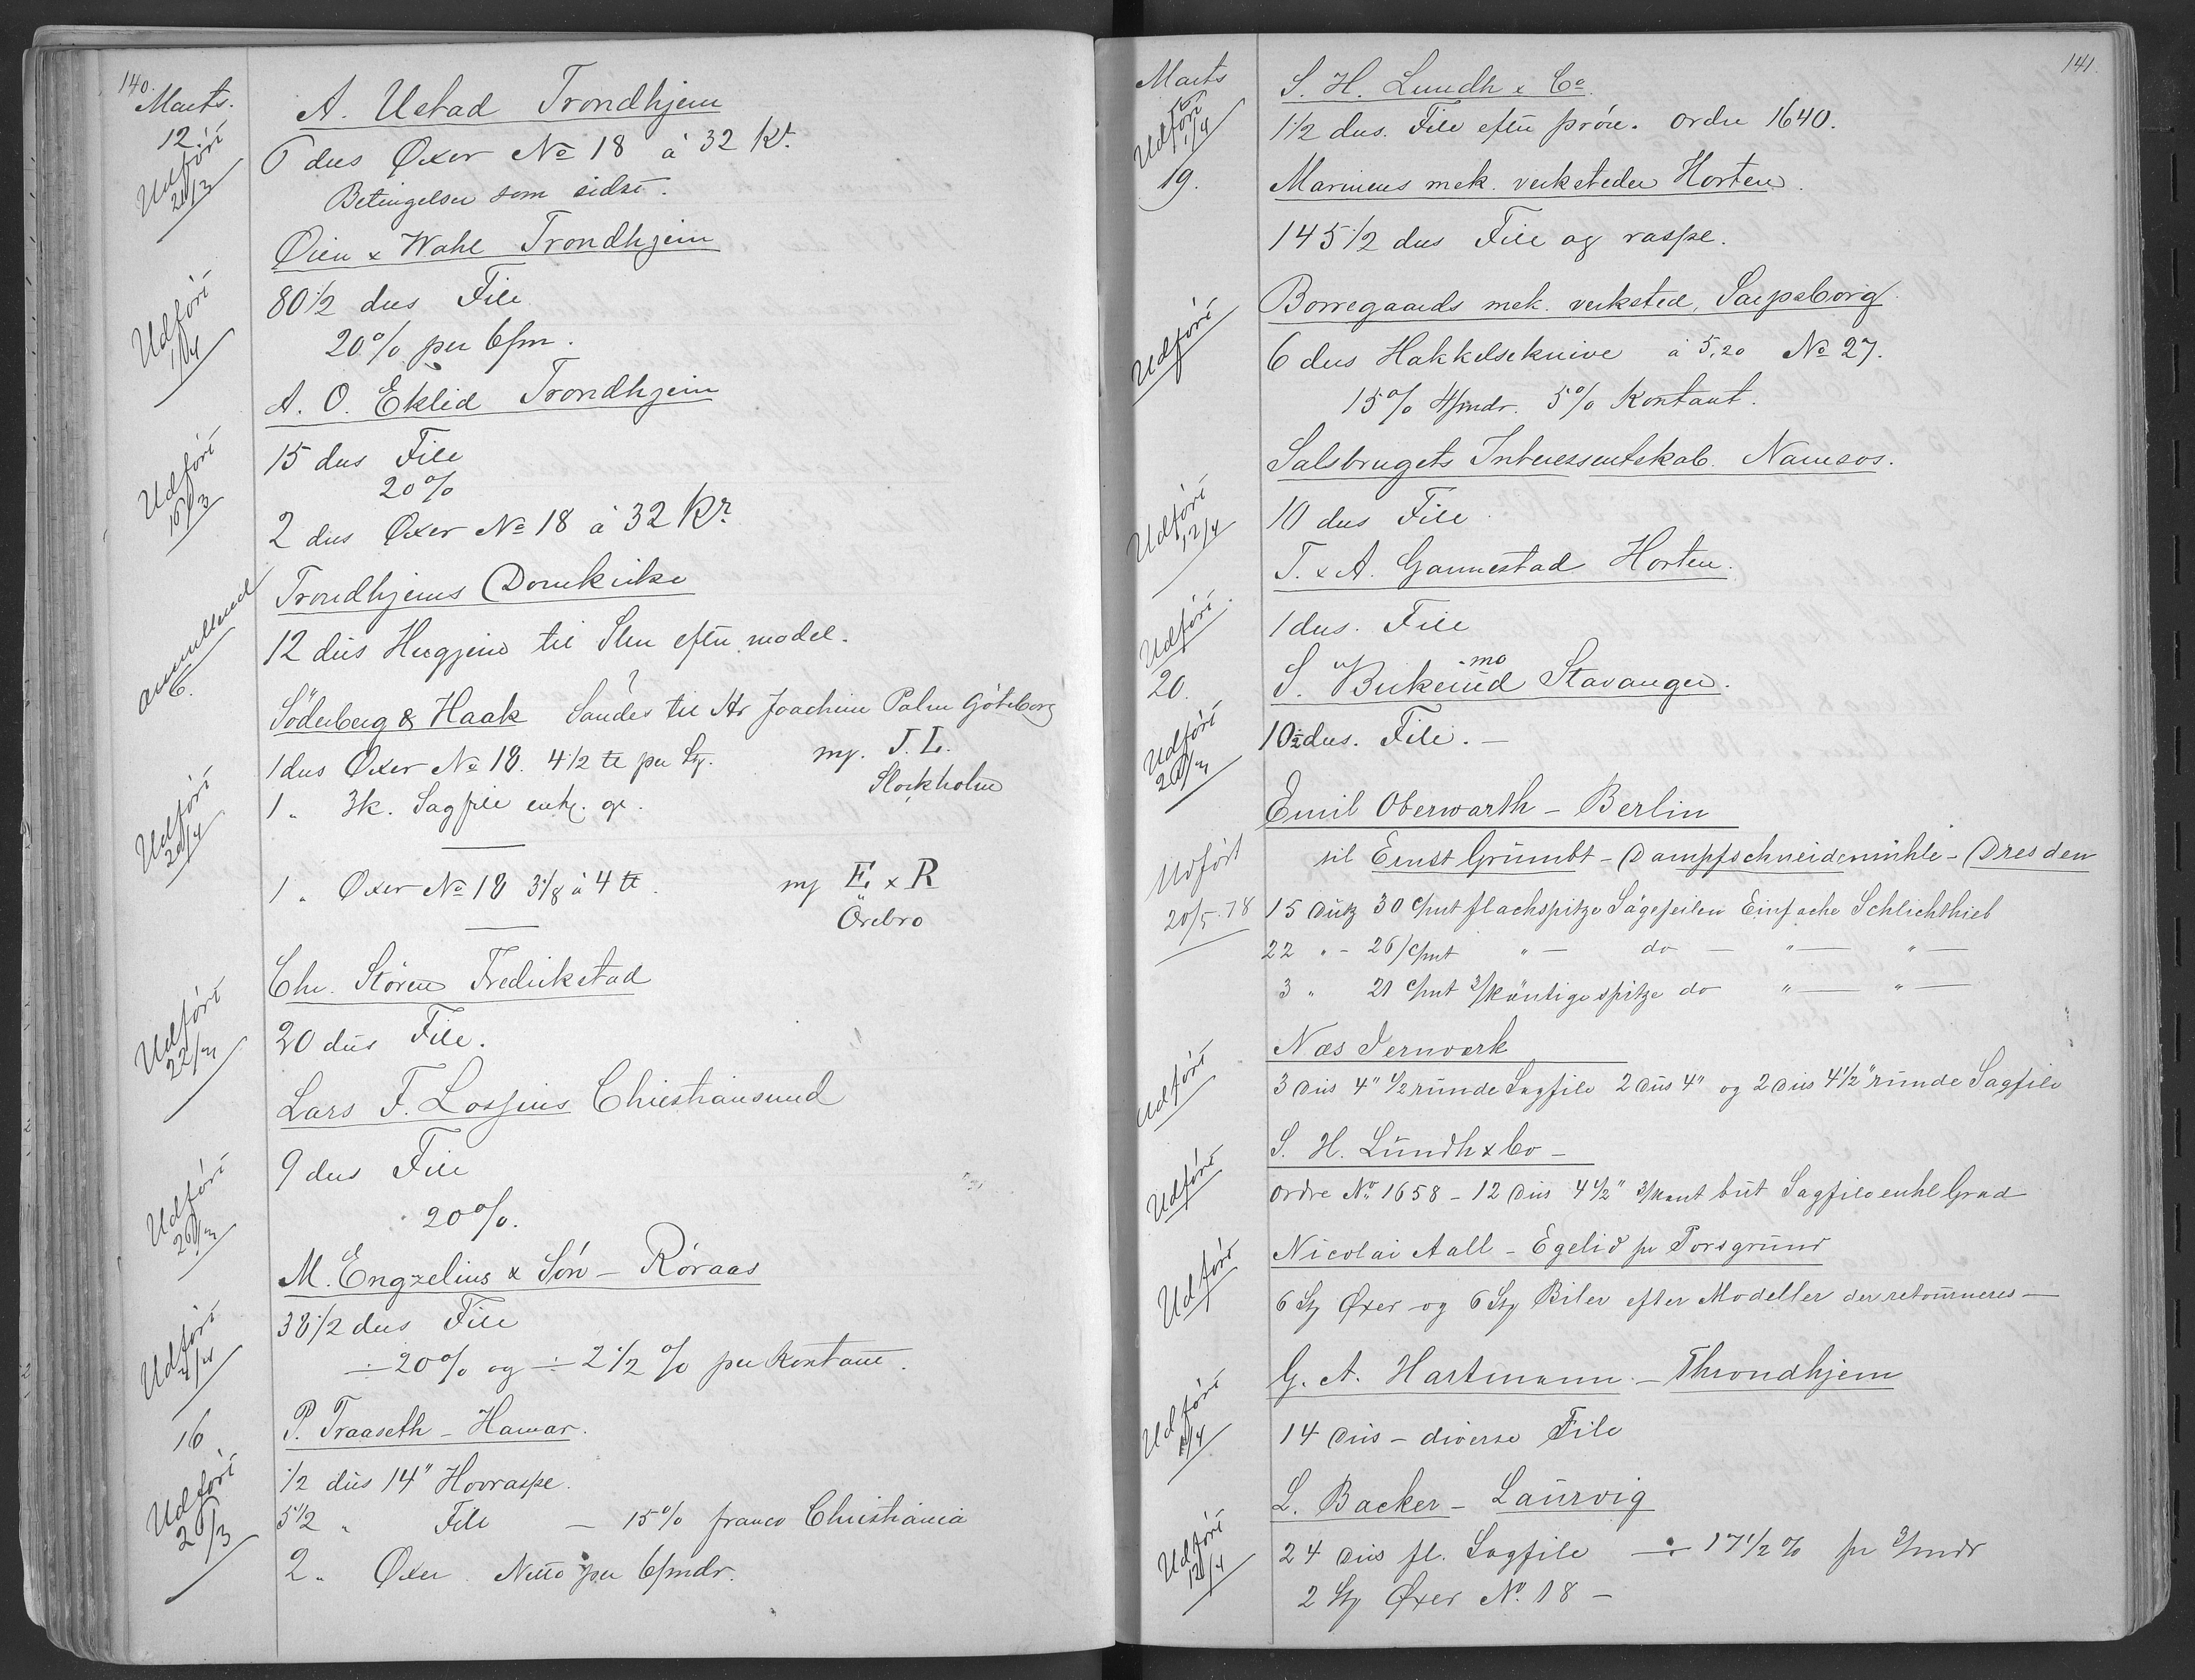 140.
Marts.
12.
A. Ustad Trondhjem
Udført 21/3
6 dus Øxer No 18 à 32 Kr.
Betingelser som sidst.
Øien & Wahl Trondhjem
Udført 1/4
80 1/2 dus File
20% per 6/m.
A. O. Eklid Trondhjem
Udført 16/3
15 dus File
20%
2 dus Øxer No 18 à 32 Kr.
Trondhjems Domkirke
6.
12 dus Hugjern til Sten efter model.
Söderberg & Haak Sendes til Hr Joachim Palm Göteborg
1 dus Øxer No 18. 4 1/2 ℔ per Stg. mg. J. L.
Stockholm
Udført 20/4
1 " 3k. Sagfile enk. gr.
1 " Øxer No 18 3 7/8 à 4 ℔. mg E & R
Örebro
Chr. Støren Fredrikstad
Udført 22/3
20 dus File.
Lars F. Lossius Christiansund
Udført 26/3
9 dus File
20%.
M. Engzelius & Søn - Røraas
Udført 4/4
38 1/2 dus File
÷ 20% og ÷ 2 1/2 % per Kontant.
16
P. Traaseth - Hamar.
Udført 26/3
1/2 dus 14" Hovraspe.
5 1/2 " File - 15% franco Christiania
2 " Øxer Netto per 6/mdr.
141.
Marts
S. H. Lundh & Co.
Udført 1/4
1 1/2 dus. File efter prøve. ordre 1640.
19.
Marinens mek. verksteder Horten.
145 1/2 dus File og raspe.
Borregaards mek. verksted, Sarpsborg.
Udført
6 dus Hakkelseknive à 5,20 No 27.
15% 4/mdr. 5% Kontant.
Salsbrugets Interessentskab. Namsos.
Udført 12/4
10 dus File.
T. & A. Gannestad Horten.
Udført
1 dus. File
20.
S. Birkelund Stavanger.
Udført 26/3
10 1/2 dus. File. -
Emil Oberwarth - Berlin
til Ernst Grumbt - Dampfschneidemühle - Dresden
Udført 20/5. 78
15 Dutz 30 c/mt flachspitze Sägefeilen Einfache Schlichthieb
22 " - 26 c/mt " - do - " - " -
3 " 21 c/mt 3/käntige spitze do " - " -
Næs Jernværk
Udført
3 Dus 4" 1/2 runde Sagfile 2 Dus 4" og 2 Dus 4 1/2" runde Sagfile
S. H. Lundh & Co -
Udført
Ordre No 1658 - 12 Dus 4 1/2" 3/kant but Sagfile enkl Grad
Nicolai Aall - Egelid pr Porsgrund
Udført
6 Stg Øxer og 6 Stg Biler efter Modeller der retourneres -
G. A. Hartmann. - Throndhjem
Udført 6/4
14 Dus - diverse File
L. Backer - Laurvig
Udført 12/4
24 Dus fl. Sagfile - ÷ 17 1/2 % pr 3/mdr
2 Stg Øxer No. 18 -